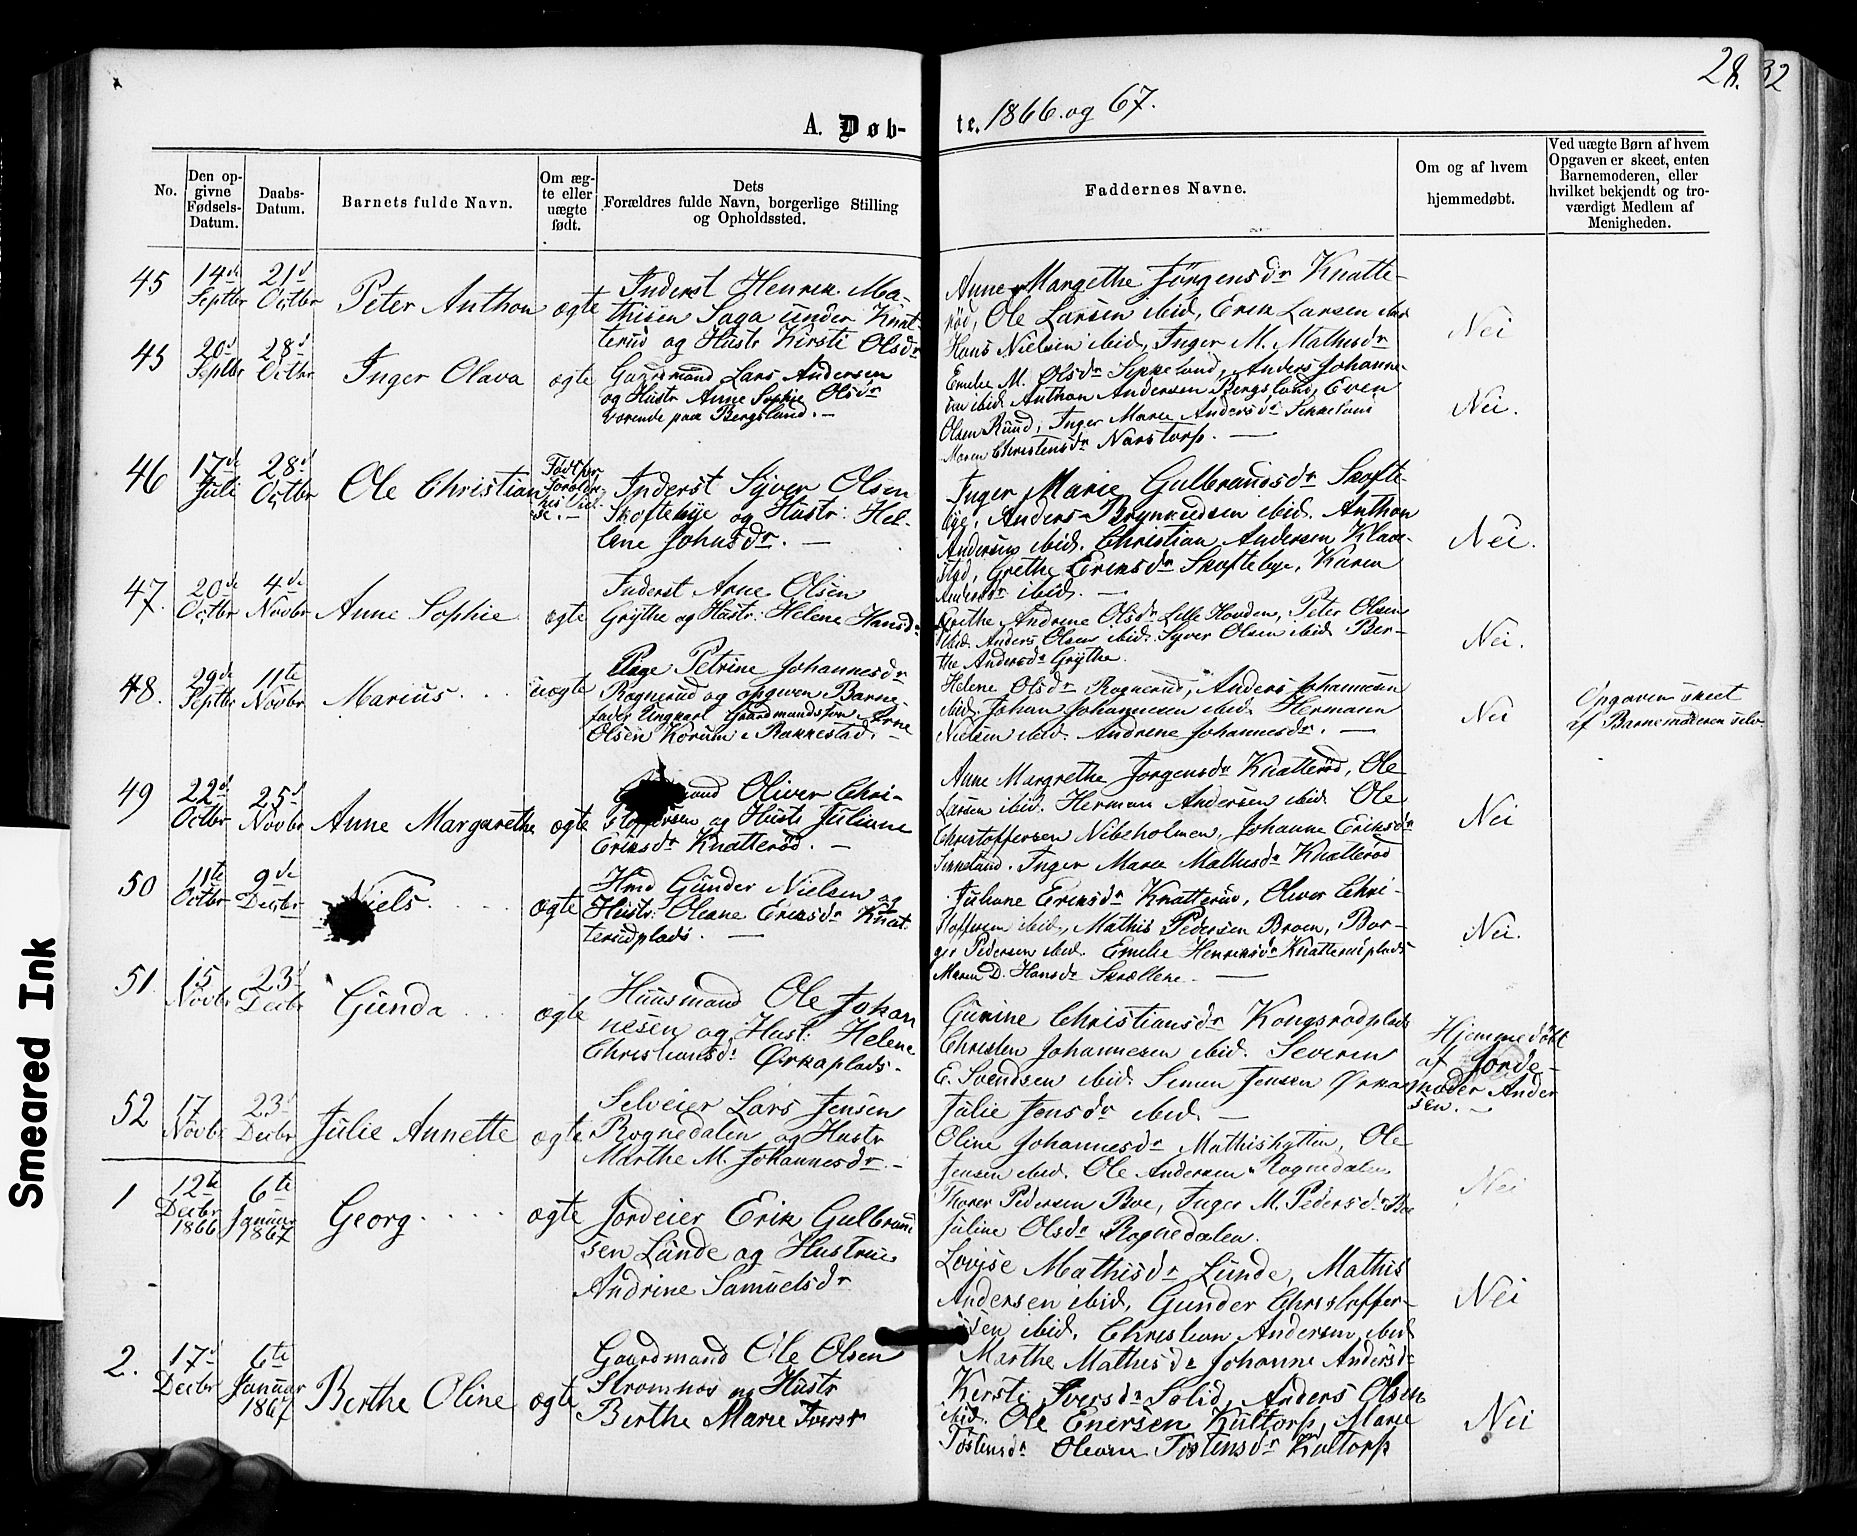 28. 32
A. Døb-
te. 1866 og 67.
No.
Den op-
givne
Fødsels-
Datum.
Daabs-
Datum.
Barnets fulde Navn.
Om æg-
te eller
uægte
født.
Dets
Forældres fulde Navn, borgerlige Stilling
og Opholdssted.
Faddernes Navne.
Om og af hvem
hjemmedøbt.
Ved uægte Børn af hvem
Opgaven er skeet, enten
Barnemoderen, eller
hvilket bekjendt og tro-
værdigt Medlem af
Menigheden.
45
14de
Septbr
21d
Octbr
Peter Anthon
ægte
Inderst Henrik Ma-
thisen Saga under Knat-
terud og Hustr Kirsti Olsdr
Anne Margethe Jörgensdr Knatte-
röd, Ole Larsen ibid, Erik Larsen ibid
Hans Nielsen ibid, Inger M. Mathisdr
Nei
45
20d
Septbr
28d
Octbr
Inger Olava
ægte
Gaardmand Lars Andersen
og Hustr Anne Sophie Olsdr
værende paa Bergsland. —
Emelie M. Olsdr Sekkelund, Anders Johanne-
sen ibid Anthon Andersen Bergsland, Even
Olsen Rund, Inger Marie Andersdr
Maren Christensdr Narstorp. —
Nei.
46
17de
Juli
28d
Octbr
Ole Christian
Født før
Inderst Syver Olsen
Skoftebye og Hustr: Hel-
ene Johnsdr. —
Inger Marie Gulbrandsdr Skofte-
bye, Anders Brynildsen ibid. Anthon
Andersen ibid. Christian Andersen Klave-
stad, Grethe Eriksdr Skoftebye, Karen
Andersdr ibid. —
Nei.
47.
20de
Octbr
4de
Novbr
Anne Sophie
ægte
Inderst Arne Olsen
Grÿthe og Hustr. Helene Hansdr
Grethe Andrene Olsdr Lille Honden, Peter Olsen
ibid. Anders Olsen ibid. Syver Olsen ibid Ber-
the Andersdr Grÿthe.
Nei.
48.
29de
Septbr
11te
Novbr
Marius
uægte
Pige Petrine Johannesdr
Rognerud og opgiven Barne-
fader Ungkarl Gaardmandssøn Arne
Olsen Korum i Rakkestad. —
Helene Olsdr Rognerud, Anders Johannesen
ibid. Johan Johannesen ibid. Hermann
Nielsen ibid. Andrene Johannesdr. —
Nei
Opgaven skeet
af Barnemoderen selv
49
22d
Octbr
25d
Novbr
Anne Margarethe
ægte
Oliver Chri-
stoffersen og Hustr Juliane
Eriksdr Knatteröd. —
Anne Margrethe Jorgensdr Knatteröd, Ole
Larsen ibid. Herman Andersen ibid. Ole
Christoffersen Nibeholmen, Johanne Eriksdr
Inger Marie Mathisdr Knatteröd
Nei
50
11te
Octbr
9de
Decbr
Niels.
ægte
Hmd Gunder Nielsen og
Hustr: Oleane Eriksdr Knat-
terudplads. —
Juliane Eriksdr Knatterud, Oliver Chri-
stoffersen ibid, Mathis Pedersen Broen, Bor-
ger Pedersen ibid. Emelie Henriksdr Knatterudplads
Maren D. Hansdr Skrællene. —
Nei.
51
15
Novbr
23d
Decbr
Gunda
ægte
Huusmand Ole Johan
nesen og Hust: Helene
Christiansdr Ørkaplads.
Gurine Christiansdr Kongsrødplads
Christen Johannesen ibid. Severin
E. Svendsen ibid. Simen Jensen Ørka
Julie Jensdr ibid. —
Hjemmedøbt
af Jorde-
moder Ander
sen. —
52
17
Novbr
23d
Decbr
Julie Annette
ægte
Selveier Lars Jensen
Rognedalen og Hustr
Marthe M. Johannesdr. —
Oline Johannesdr Mathishytten, Ole
Jensen ibid. Ole Andersen Rognedalen
Thorer Pedersen Boe, Inger M. Pedersdr Boe
Juline Olsdr Rognedalen.
Nei
1
12te
Decbr
1866
6te
Januar
1867
Georg
ægte
Jordeier Erik Gulbrand
sen Lunde og Hustrue
Andrine Samuelsdr
Lovise Mathisdr Lunde, Mathis
Andersen ibid, Gunder Christoffer-
sen ibid, Christian Andersen ibid
Marthe Mathisdr Johanne Andersdr
Nei
2.
17d
Decbr
6te
Januar
1867
Berthe Oline
ægte
Gaardmand Ole Olsen
Stromnes og Hustr
Berthe Marie Iversdr
Kersti Iversdr Solid, Anders Olsen
ibid. Ole Enersen Kultorp, Marie
Tostensdr Tostensdr Kultorp
Nei
Smeared Ink